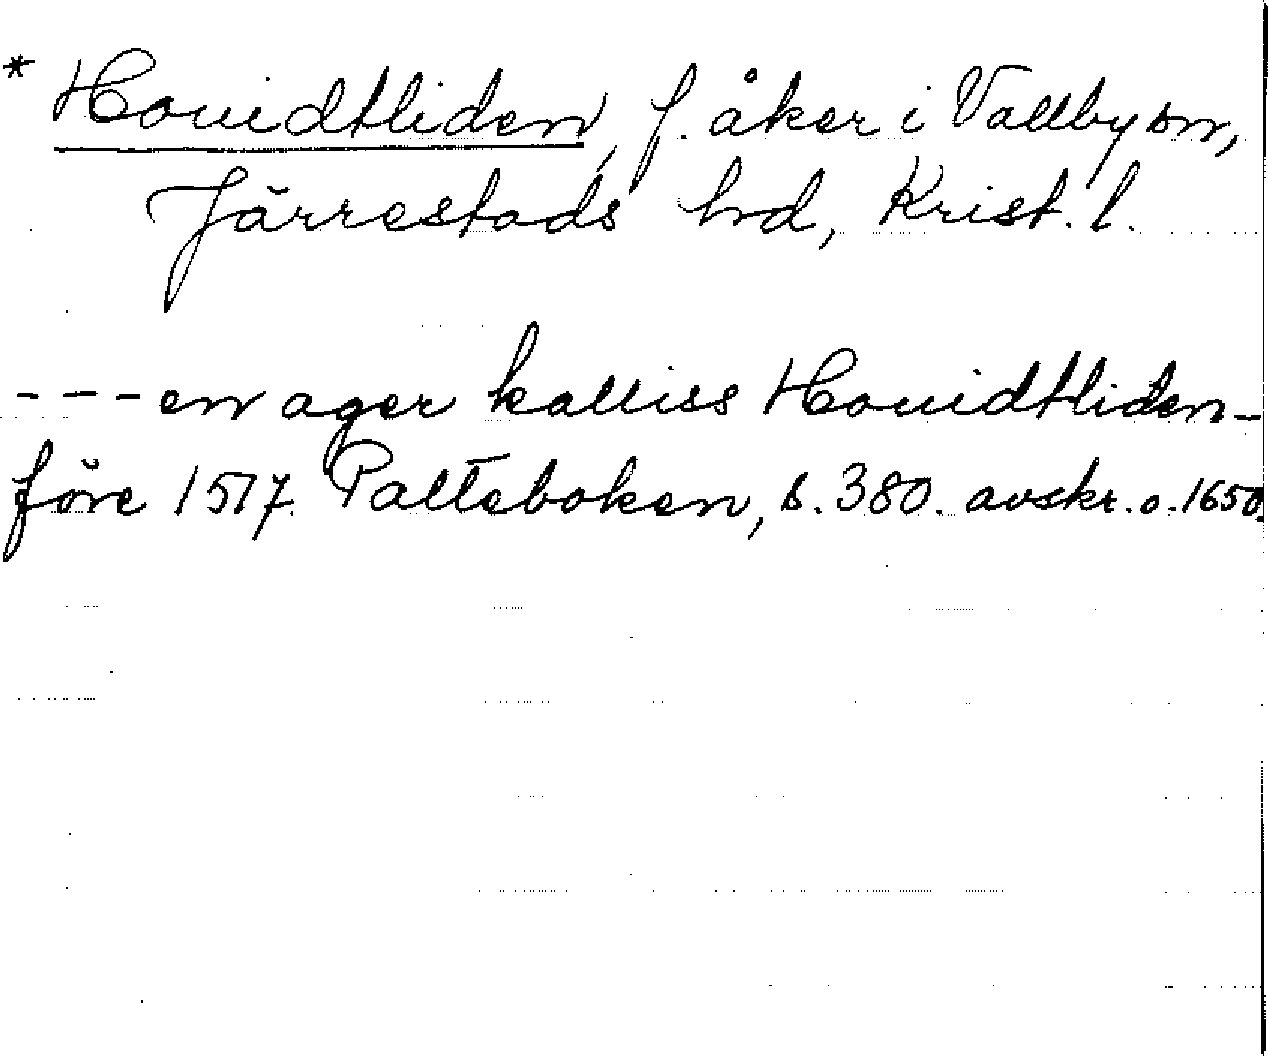 * Houidtliden, f. åker i Vallby sn,
Järrestads hrd, Krist. l.
--- en ager kalliss Houidtliden -
före 1517. Palteboken, s. 380. avskr. o. 1650.